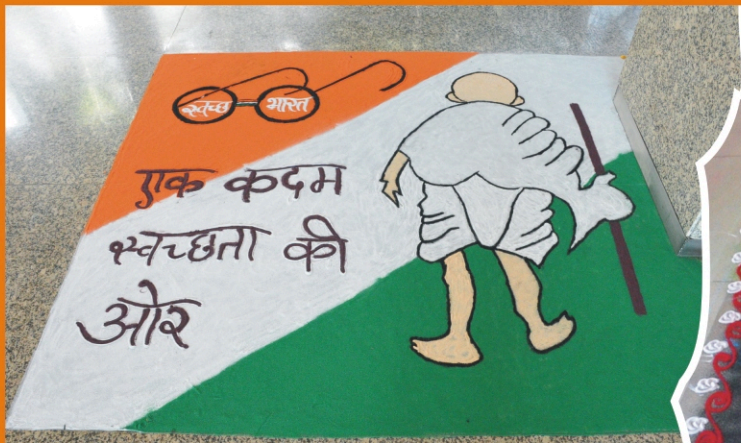 स्वच्छ भारत
एक कदम
स्वच्छता की
ओर